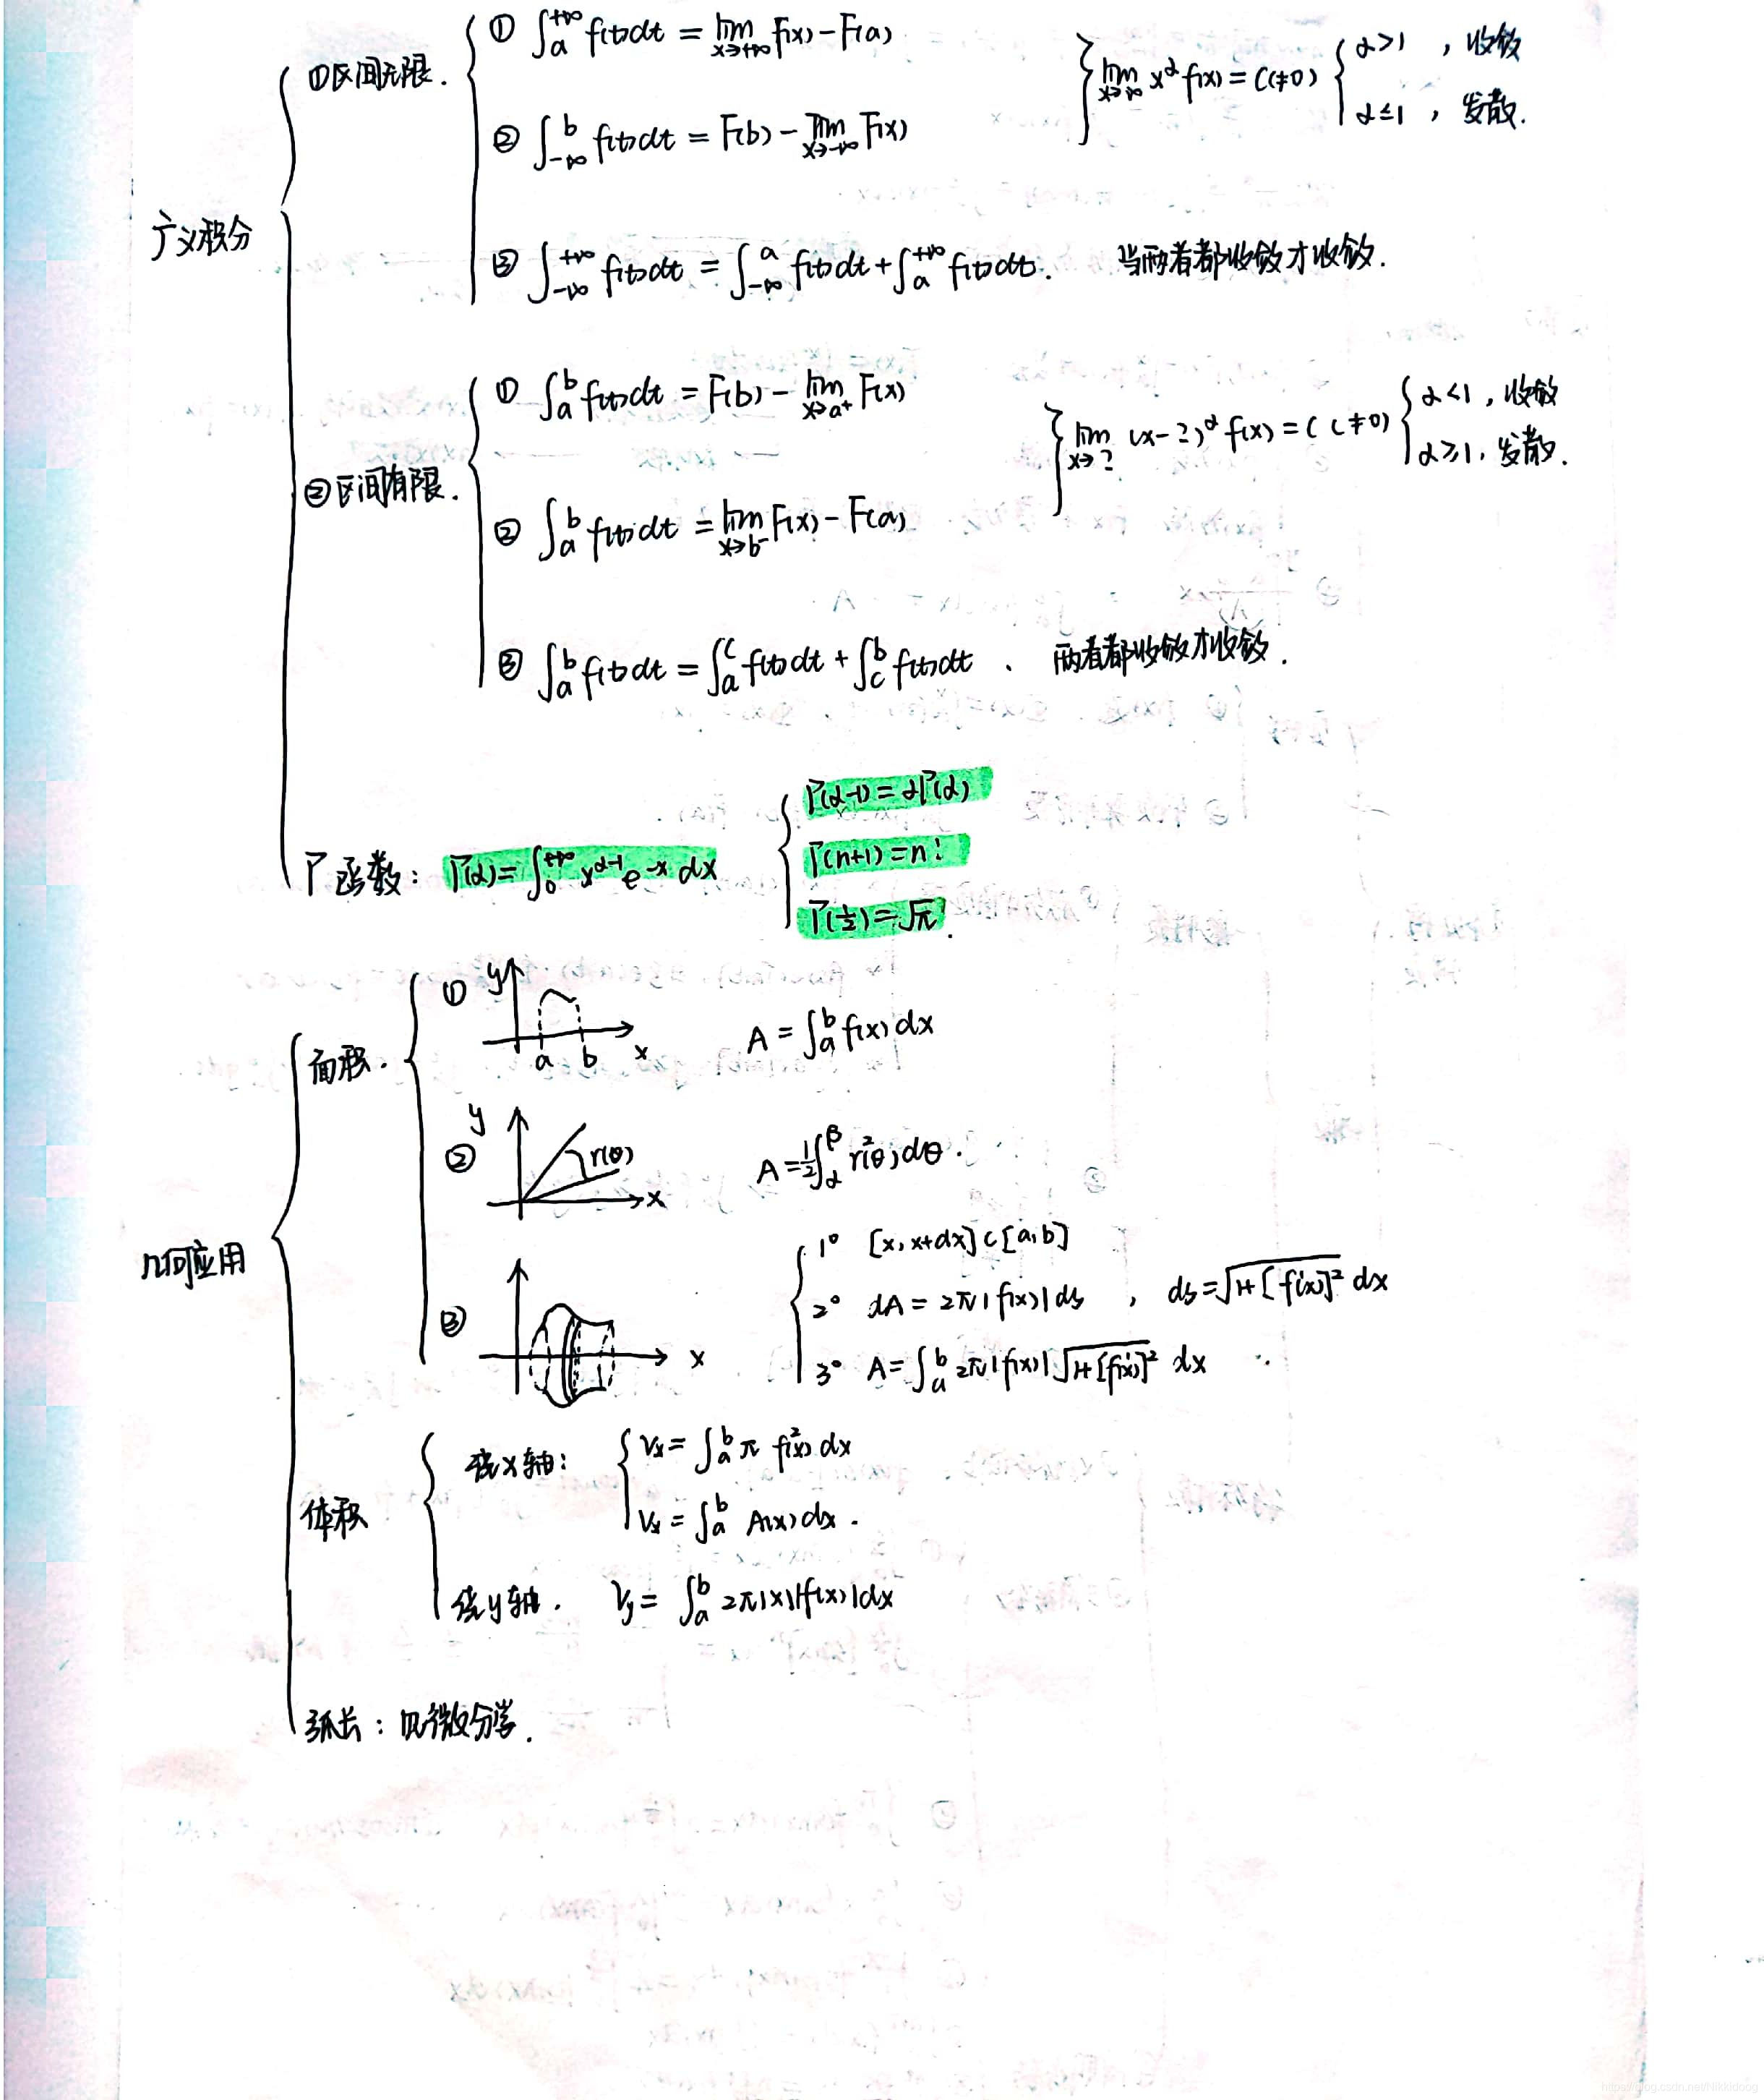 广义积分
①区间无限.
① ∫_a^{+∞} f(t)dt = lim_{x→+∞} F(x) - F(a)
② ∫_{-∞}^b f(t)dt = F(b) - lim_{x→-∞} F(x)
lim_{x→∞} x^α f(x) = C(≠0) { α>1 , 收敛
α≤1 , 发散.
③ ∫_{-∞}^{+∞} f(t)dt = ∫_{-∞}^a f(t)dt + ∫_a^{+∞} f(t)dt. 当两者都收敛才收敛.
②区间有限.
① ∫_a^b f(t)dt = F(b) - lim_{x→a⁺} F(x)
② ∫_a^b f(t)dt = lim_{x→b⁻} F(x) - F(a)
lim_{x→?} (x-?)^α f(x) = C (≠0) { α<1 , 收敛
α≥1 , 发散.
③ ∫_a^b f(t)dt = ∫_a^c f(t)dt + ∫_c^b f(t)dt 、 两者都收敛才收敛.
Γ函数: Γ(α) = ∫_0^{+∞} x^{α-1} e^{-x} dx
Γ(α-1) = αΓ(α)
Γ(n+1) = n!
Γ(1/2) = √π.
几何应用
面积.
① y a b x A = ∫_a^b f(x) dx
② y r(θ) x A = 1/2 ∫_α^β r²(θ) dθ.
③ x
1° [x, x+dx]⊂[a,b]
2° dA = 2π|f(x)|ds , ds = √(1+[f'(x)]²) dx
3° A = ∫_a^b 2π|f(x)|√(1+[f'(x)]²) dx
体积
绕x轴: Vx = ∫_a^b π f²(x) dx
Vx = ∫_a^b A(x) dx .
绕y轴. Vy = ∫_a^b 2π|x||f(x)|dx
弧长: 见微分学.